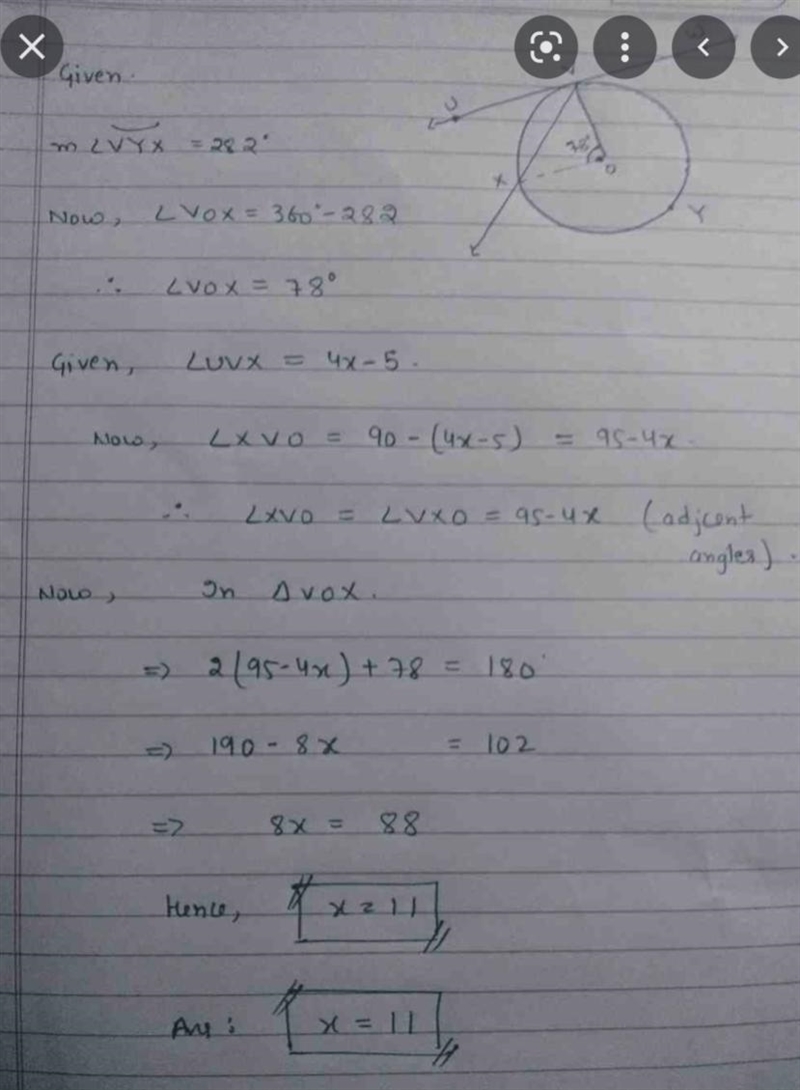 Given.
m∠VYX = 282°
Now, ∠VOX = 360° - 282
∴ ∠VOX = 78°
Given, ∠UVX = 4x - 5.
Now, ∠XVO = 90 - (4x-5) = 95-4x.
∴ ∠XVO = ∠VXO = 95-4x (adjcent
angles).
Now, In ΔVOX.
=> 2(95-4x) + 78 = 180°
=> 190 - 8x = 102
=> 8x = 88
Hence, x = 11
Ans: x = 11
U
78°
X
O
Y